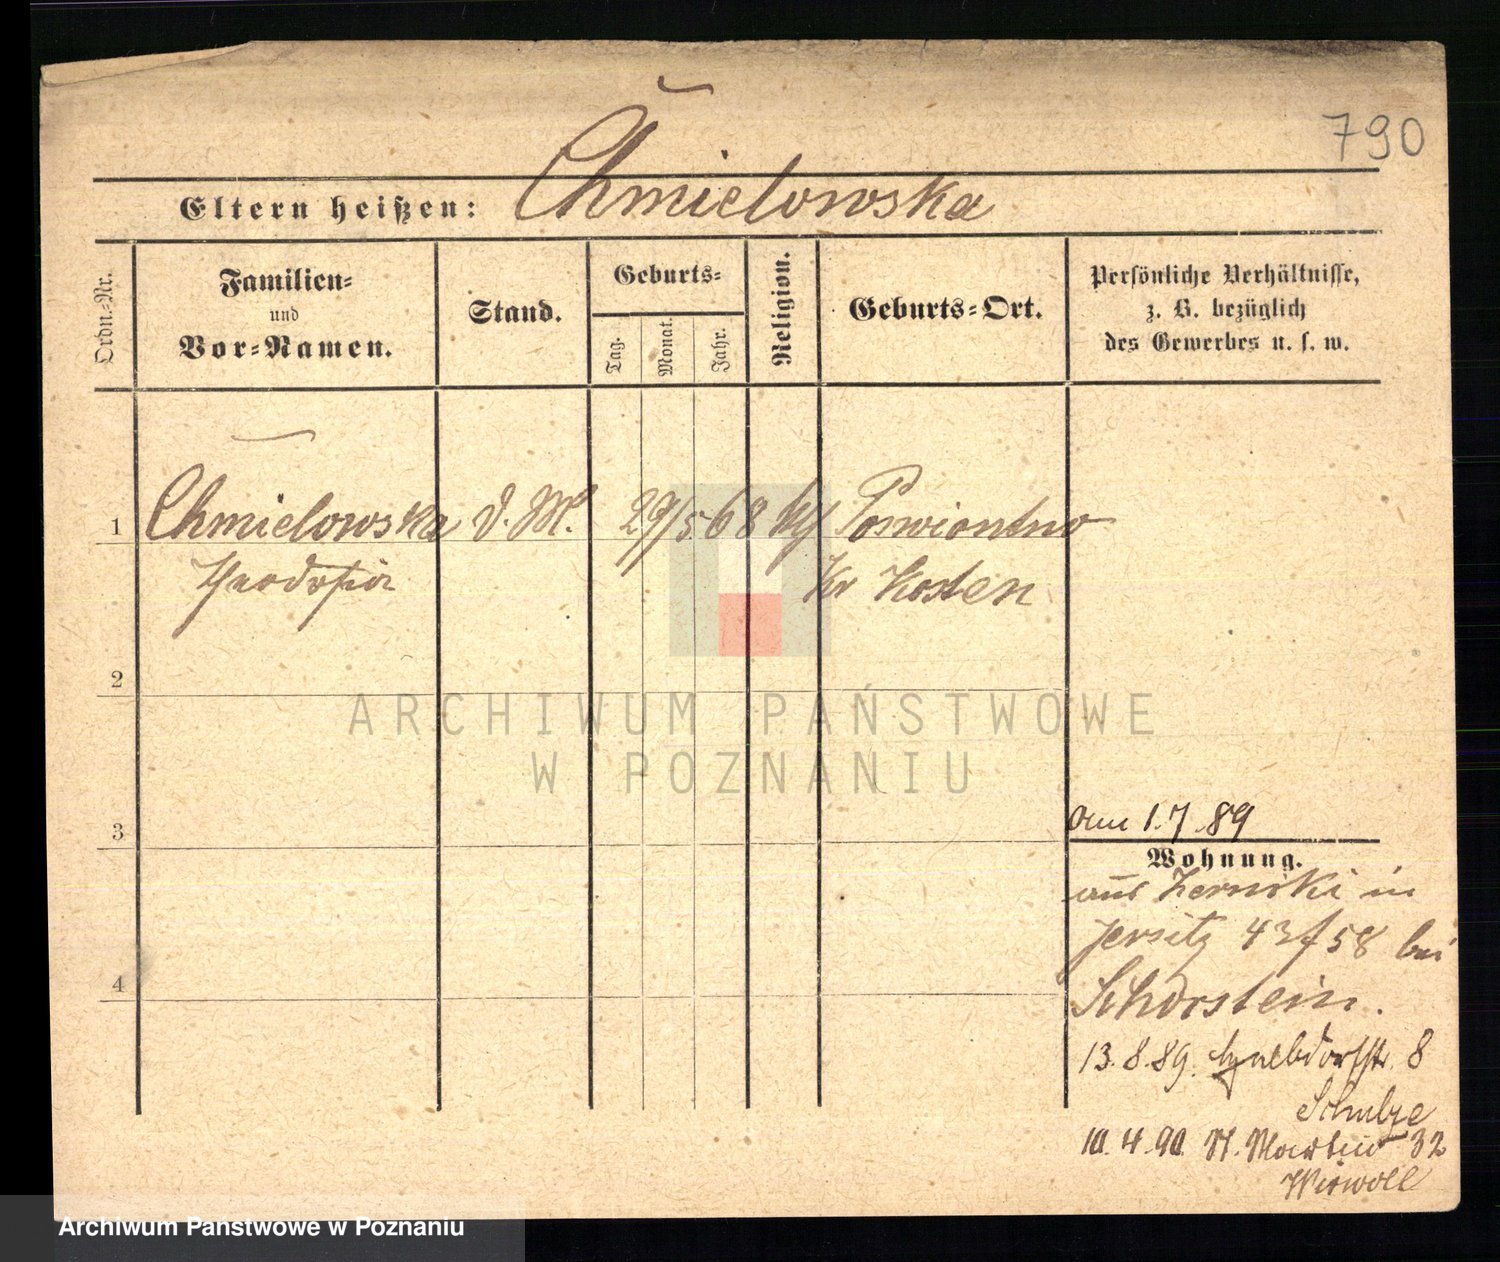 790
Chmielowska
Eltern heißen:
Ordn.-Nr.
Familien-
und
Vor-Namen.
Stand.
Geburts-
Tag.
Monat.
Jahr.
Religion.
Geburts-Ort.
Persönliche Verhältnisse,
z. B. bezüglich
des Gewerbes u. s. w.
1 Chmielowska d. M. 29/5 68 Poswiontno
Theodosia Kr Kosten
2
3
4
am 1.7.89
Wohnung.
aus Zerniki in
Jersitz 43f58 bei
Schorstein.
13.8.89. 8
Schulze
10.4.90. St. Martin 32
ARCHIWUM PAŃSTWOWE
W POZNANIU
Archiwum Państwowe w Poznaniu